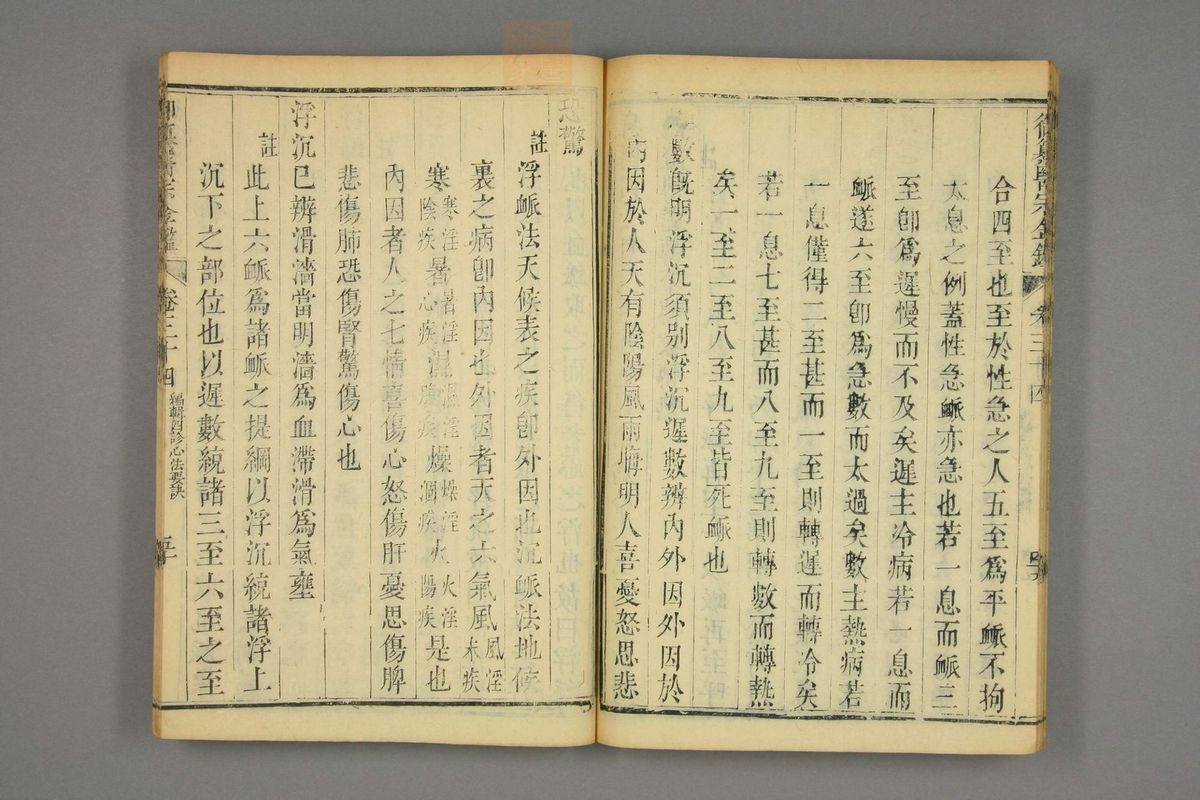 御纂醫宗金鑑 卷三十四
合四至也至於性急之人五至爲平脈不拘
太息之例蓋性急脈亦急也若一息而脈三
至卽爲遲慢而不及矣遲主冷病若一息而
脈遂六至卽爲急數而太過矣數主熱病若
一息僅得二至甚而一至則轉遲而轉冷矣
若一息七至甚而八至九至則轉數而轉熱
矣一至二至八至九至皆死脈也
數旣明浮沉須別浮沉遲數辨內外因外因於
內因於人天有陰陽風雨晦明人喜憂怒思悲
恐驚
註 浮脈法天候表之疾卽外因也沉脈法地候
裏之病卽內因也外因者天之六氣風風淫末疾
寒寒淫陰疾暑暑淫心疾濕濕淫腹疾燥燥淫涸疾火火淫陽疾是也
內因者人之七情喜傷心怒傷肝憂思傷脾
悲傷肺恐傷腎驚傷心也
浮沉已辨滑濇當明濇爲血滯滑爲氣壅
註 此上六脈爲諸脈之提綱以浮沉統諸浮上
沉下之部位也以遲數統諸三至六至之至
御纂醫宗金鑑 卷三十四 編輯四診心法要訣